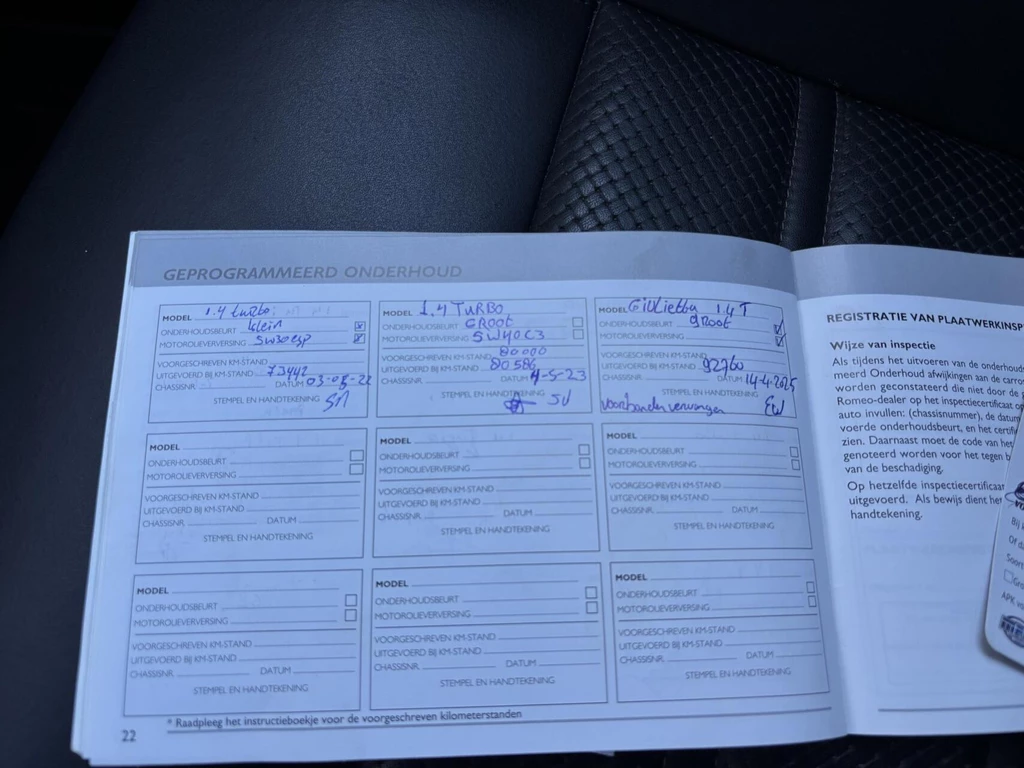 GEPROGRAMMEERD ONDERHOUD
MODEL 1.4 turbo
ONDERHOUDSBEURT klein
MOTOROLIEVERVERSING 5W30esp
VOORGESCHREVEN KM-STAND
UITGEVOERD BIJ KM-STAND 73442
CHASSISNR. DATUM 03-05-22
STEMPEL EN HANDTEKENING
MODEL 1.4 TURBO
ONDERHOUDSBEURT GROOT
MOTOROLIEVERVERSING 5W40C3
VOORGESCHREVEN KM-STAND 80 000
UITGEVOERD BIJ KM-STAND 80 586
CHASSISNR. DATUM 4-5-23
STEMPEL EN HANDTEKENING
MODEL Giulietta 1.4 T
ONDERHOUDSBEURT groot
MOTOROLIEVERVERSING
VOORGESCHREVEN KM-STAND
UITGEVOERD BIJ KM-STAND 92760
CHASSISNR. DATUM 14-4-2025
STEMPEL EN HANDTEKENING
MODEL
ONDERHOUDSBEURT
MOTOROLIEVERVERSING
VOORGESCHREVEN KM-STAND
UITGEVOERD BIJ KM-STAND
CHASSISNR. DATUM
STEMPEL EN HANDTEKENING
MODEL
ONDERHOUDSBEURT
MOTOROLIEVERVERSING
VOORGESCHREVEN KM-STAND
UITGEVOERD BIJ KM-STAND
CHASSISNR. DATUM
STEMPEL EN HANDTEKENING
MODEL
ONDERHOUDSBEURT
MOTOROLIEVERVERSING
VOORGESCHREVEN KM-STAND
UITGEVOERD BIJ KM-STAND
CHASSISNR. DATUM
STEMPEL EN HANDTEKENING
MODEL
ONDERHOUDSBEURT
MOTOROLIEVERVERSING
VOORGESCHREVEN KM-STAND
UITGEVOERD BIJ KM-STAND
CHASSISNR. DATUM
STEMPEL EN HANDTEKENING
MODEL
ONDERHOUDSBEURT
MOTOROLIEVERVERSING
VOORGESCHREVEN KM-STAND
UITGEVOERD BIJ KM-STAND
CHASSISNR. DATUM
STEMPEL EN HANDTEKENING
MODEL
ONDERHOUDSBEURT
MOTOROLIEVERVERSING
VOORGESCHREVEN KM-STAND
UITGEVOERD BIJ KM-STAND
CHASSISNR. DATUM
STEMPEL EN HANDTEKENING
* Raadpleeg het instructieboekje voor de voorgeschreven kilometerstanden
22
REGISTRATIE VAN PLAATWERKINSP
Wijze van inspectie
Als tijdens het uitvoeren van de onderhouds
meerd Onderhoud afwijkingen aan de carro
worden geconstateerd die niet door de
Romeo-dealer op het inspectiecertificaat o
auto invullen: (chassisnummer), de datum
voerde onderhoudsbeurt, en het certif
zien. Daarnaast moet de code van het
genoteerd worden voor het tegen b
van de beschadiging.
Op hetzelfde inspectiecertificaa
uitgevoerd. Als bewijs dient het
handtekening.
Bij
Of da
Soort
APK v